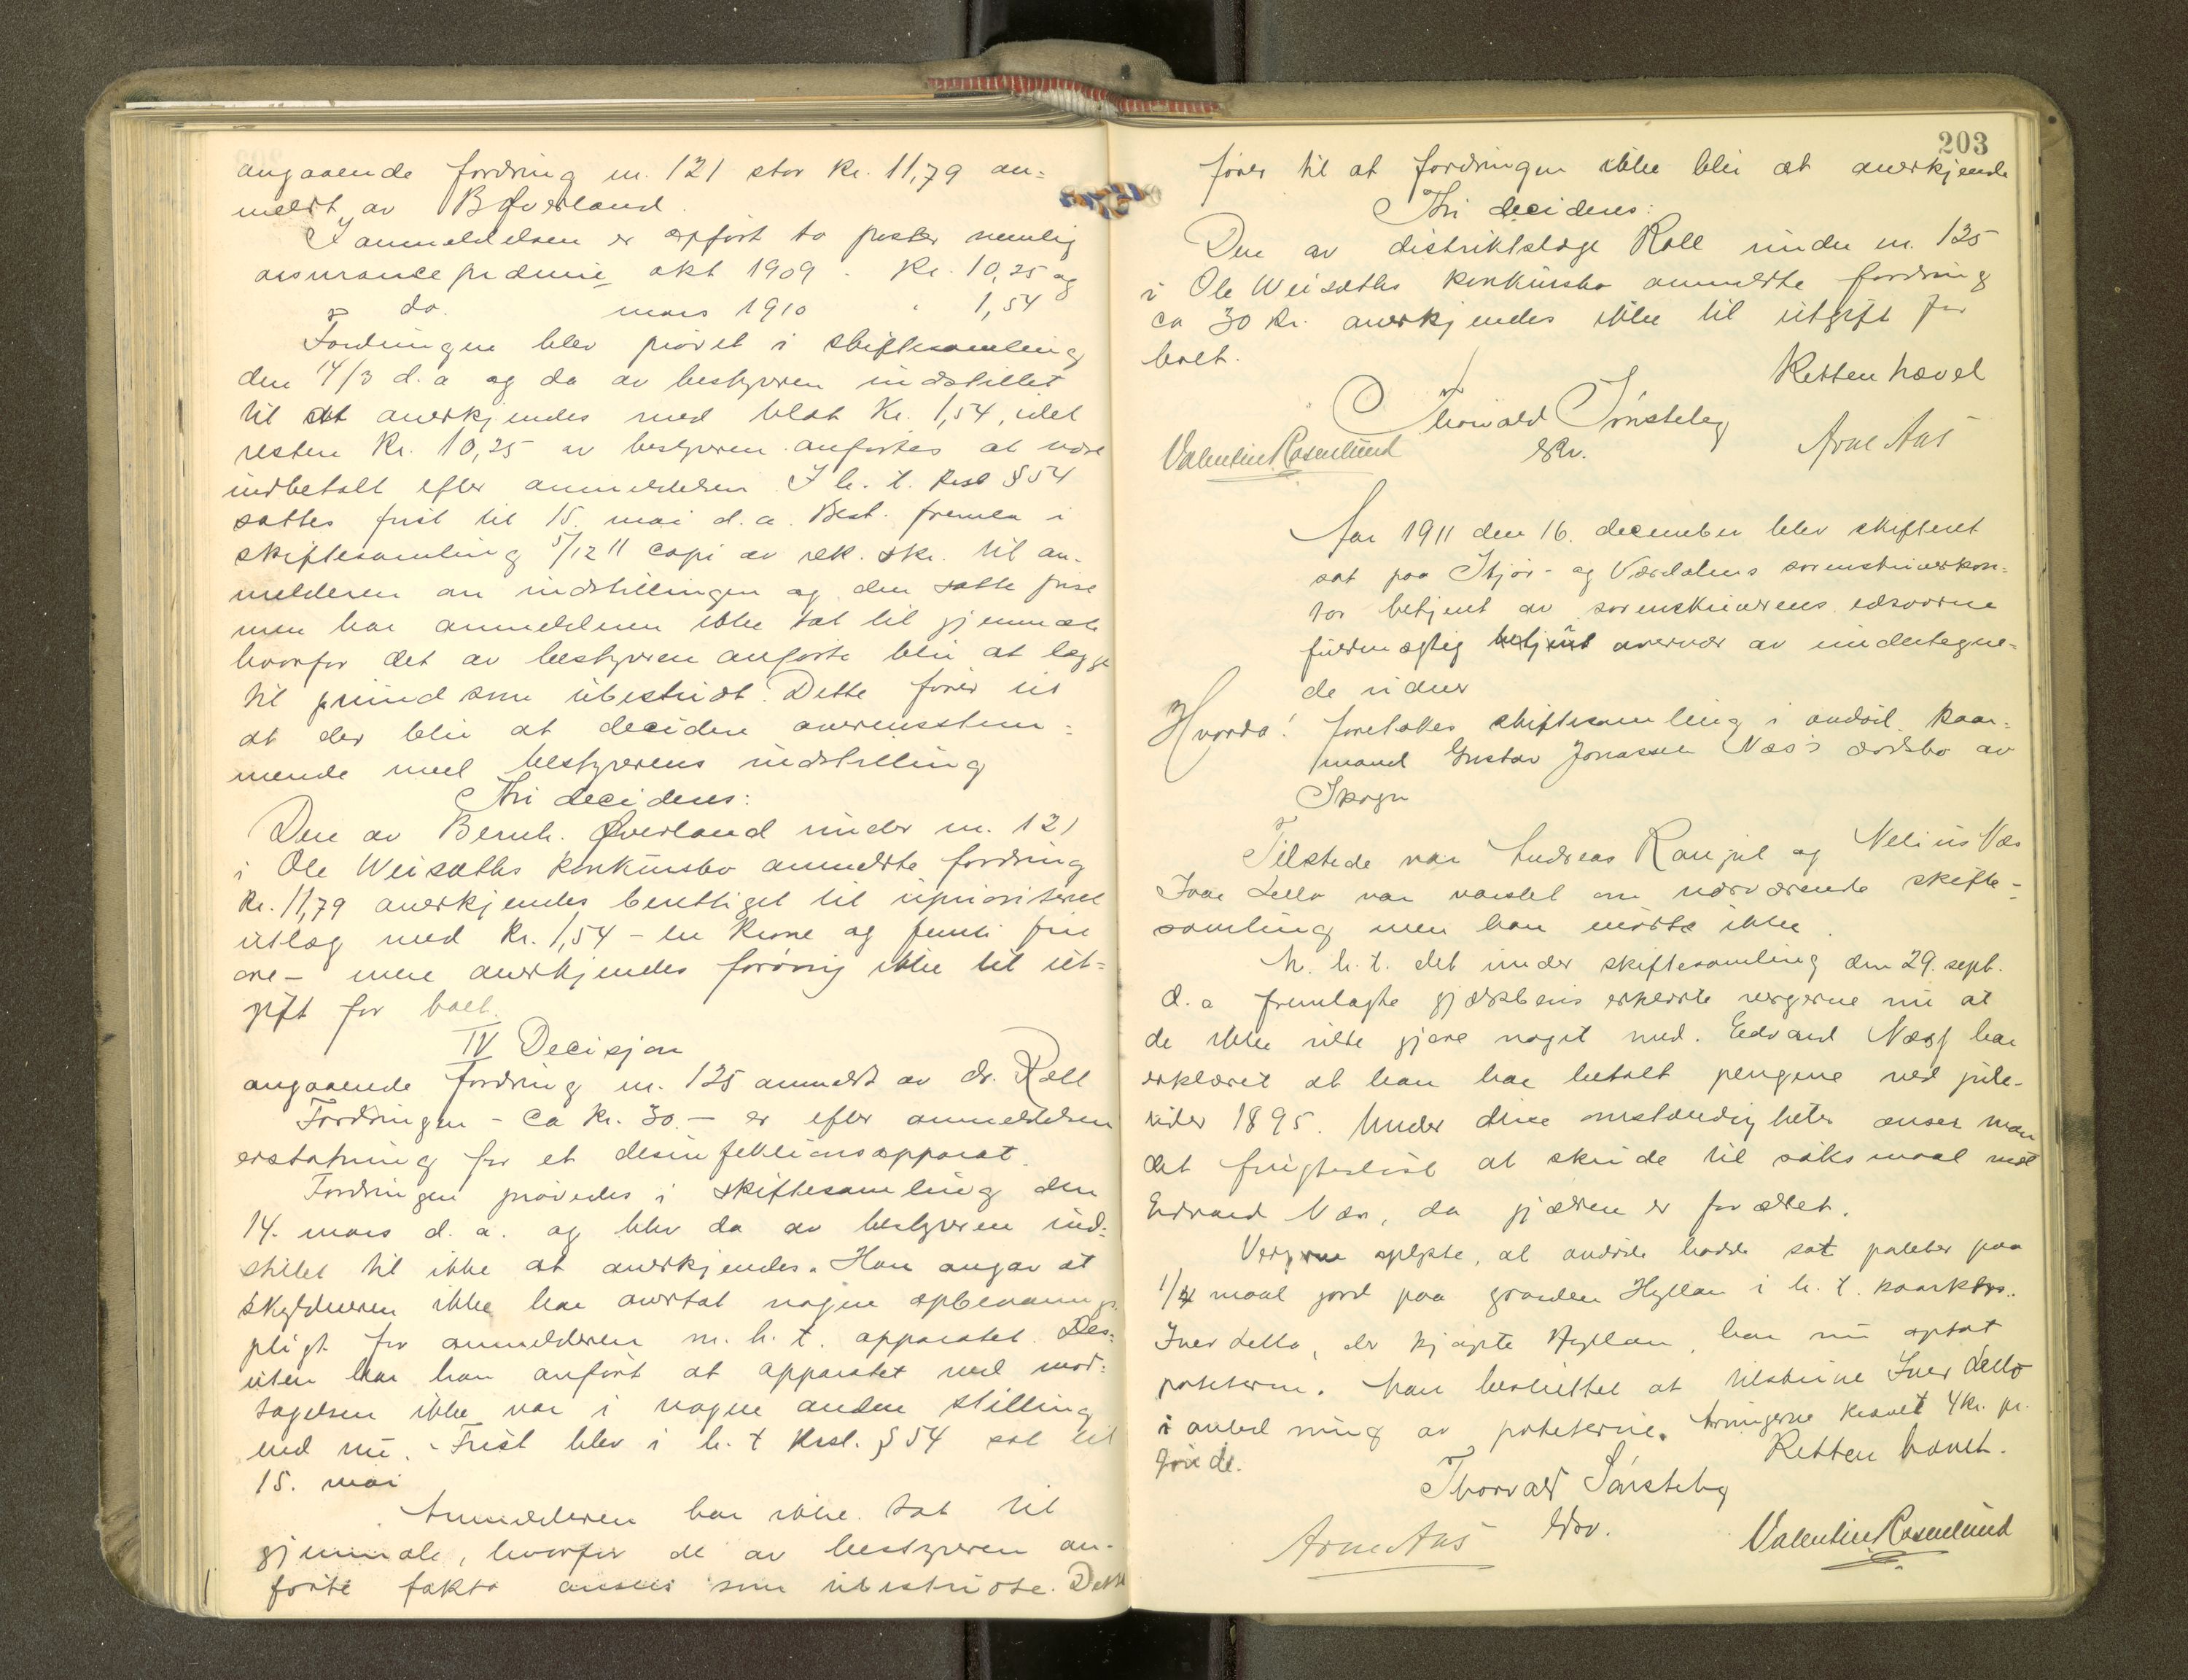 angaaende fordring nr. 121 stor kr. 11,79 an=
meldt av B Øverland.
I anmeldelsen er opført to poster nemlig
assurancepræmie okt 1909 - Kr. 10,25 og
do. mars 1910 " 1,54
Fordringen blev prøvet i skiftesamling
den 14/3 d.a og da av bestyreren indstillet
til at anerkjendes med blot Kr. 1,54, idet
resten Kr. 10,25 av bestyreren anførtes at være
indbetalt efter anmeldelsen. I h. t. Ksl § 54
sattes frist til 15. mai d.a. Best. fremla i
skiftesamling 5/12 11 copi av rek. skr. til an-
melderen om indstillingen og den satte frist
men har anmelderen ikke tat til gjenmæle
hvorfor det av bestyreren anførte blir at lægge
til grund som ubestridt. Dette fører til
at der blir at decidere overensstem=
mende med bestyrerens indstilling
Thi decideres:
Den av Bernh. Øverland under nr. 121
i Ole Weisæths konkursbo anmeldte fordring
Kr. 11,79 anerkjendes berettiget til uprioritert
utlæg med Kr. 1,54 - en krone og femti fire
øre - men anerkjendes forøvrig ikke til ut=
gift for boet.
IV Decisjon
angaaende fordring nr. 125 anmeldt av dr. Roll
Fordringen - ca kr. 30. - er efter anmeldelsen
erstatning for et desinfektionsapparat.
Fordringen prøvedes i skiftesamling den
14. mars d. a. og blev da av bestyreren ind=
stillet til ikke at anerkjendes. Han angav at
skyldneren ikke har overtat nogen opbevarings
pligt for anmelderen m. h. t. apparatet. Des=
uten har han anført at apparatet ved mot=
tagelsen ikke var i nogen anden stilling
end nu. - Frist blev i h. t Krsl. § 54 sat til
15. mai
Anmelderen har ikke tat til
gjenmæle, hvorfor de av bestyreren an-
førte fakta ansees som ubestridte. Dette
203
fører til at fordringen ikke blir at anerkjende
Thi decideres:
Den av distriktslæge Roll under nr. 125
i Ole Weisæths konkursbo anmeldte fordring
ca 30 kr. anerkjendes ikke til utgift for
boet.
Retten hævet
Thorvald Sønsteby
Valentin Rosenlund
Arne Aas
Aar 1911 den 16. december blev skifteret
sat paa Stjør- og Værdalens sorenskriverkon=
tor betjent av sorenskriverens edsvorne
fuldmægtig betjent overvær av undertegne=
de vidner
Hvorda! foretokes skiftesamling i avdød kaar=
mand Gustav Jonassen Næs's dødsbo av
Skogn
Tilstede var Andreas Ramjul og Nelius Næs
Ivar Lello var varslet om nærværende skifte=
samling men han møtte ikke.
M. h. t. det under skiftesamling den 29. sept.
d. a fremlagte gjældsbevis erklærte vergerne nu at
de ikke vilde gjøre noget med. Edvard Næss har
erklæret at han har betalt pengene ved jule-
tider 1895. Under disse omstændigheter anser man
det frugtesløst at skride til søksmaal mot
Edvard Næs, da gjælden er forældet.
Vergerne oplyste, at avdøde hadde sat poteter paa
1/4 maal jord paa gaarden Hyllan i h. t. kaarktrs..
Iver Lello, der kjøpte Hyllan, har nu optat
poteterne. Man besluttet at tilskrive Iver Lello
i anledning av poteterne. Arvingerne krævet 4 kr. pr.
Retten hævet.
Thorvald Sønsteby
Arne Aas
Valentin Rosenlund